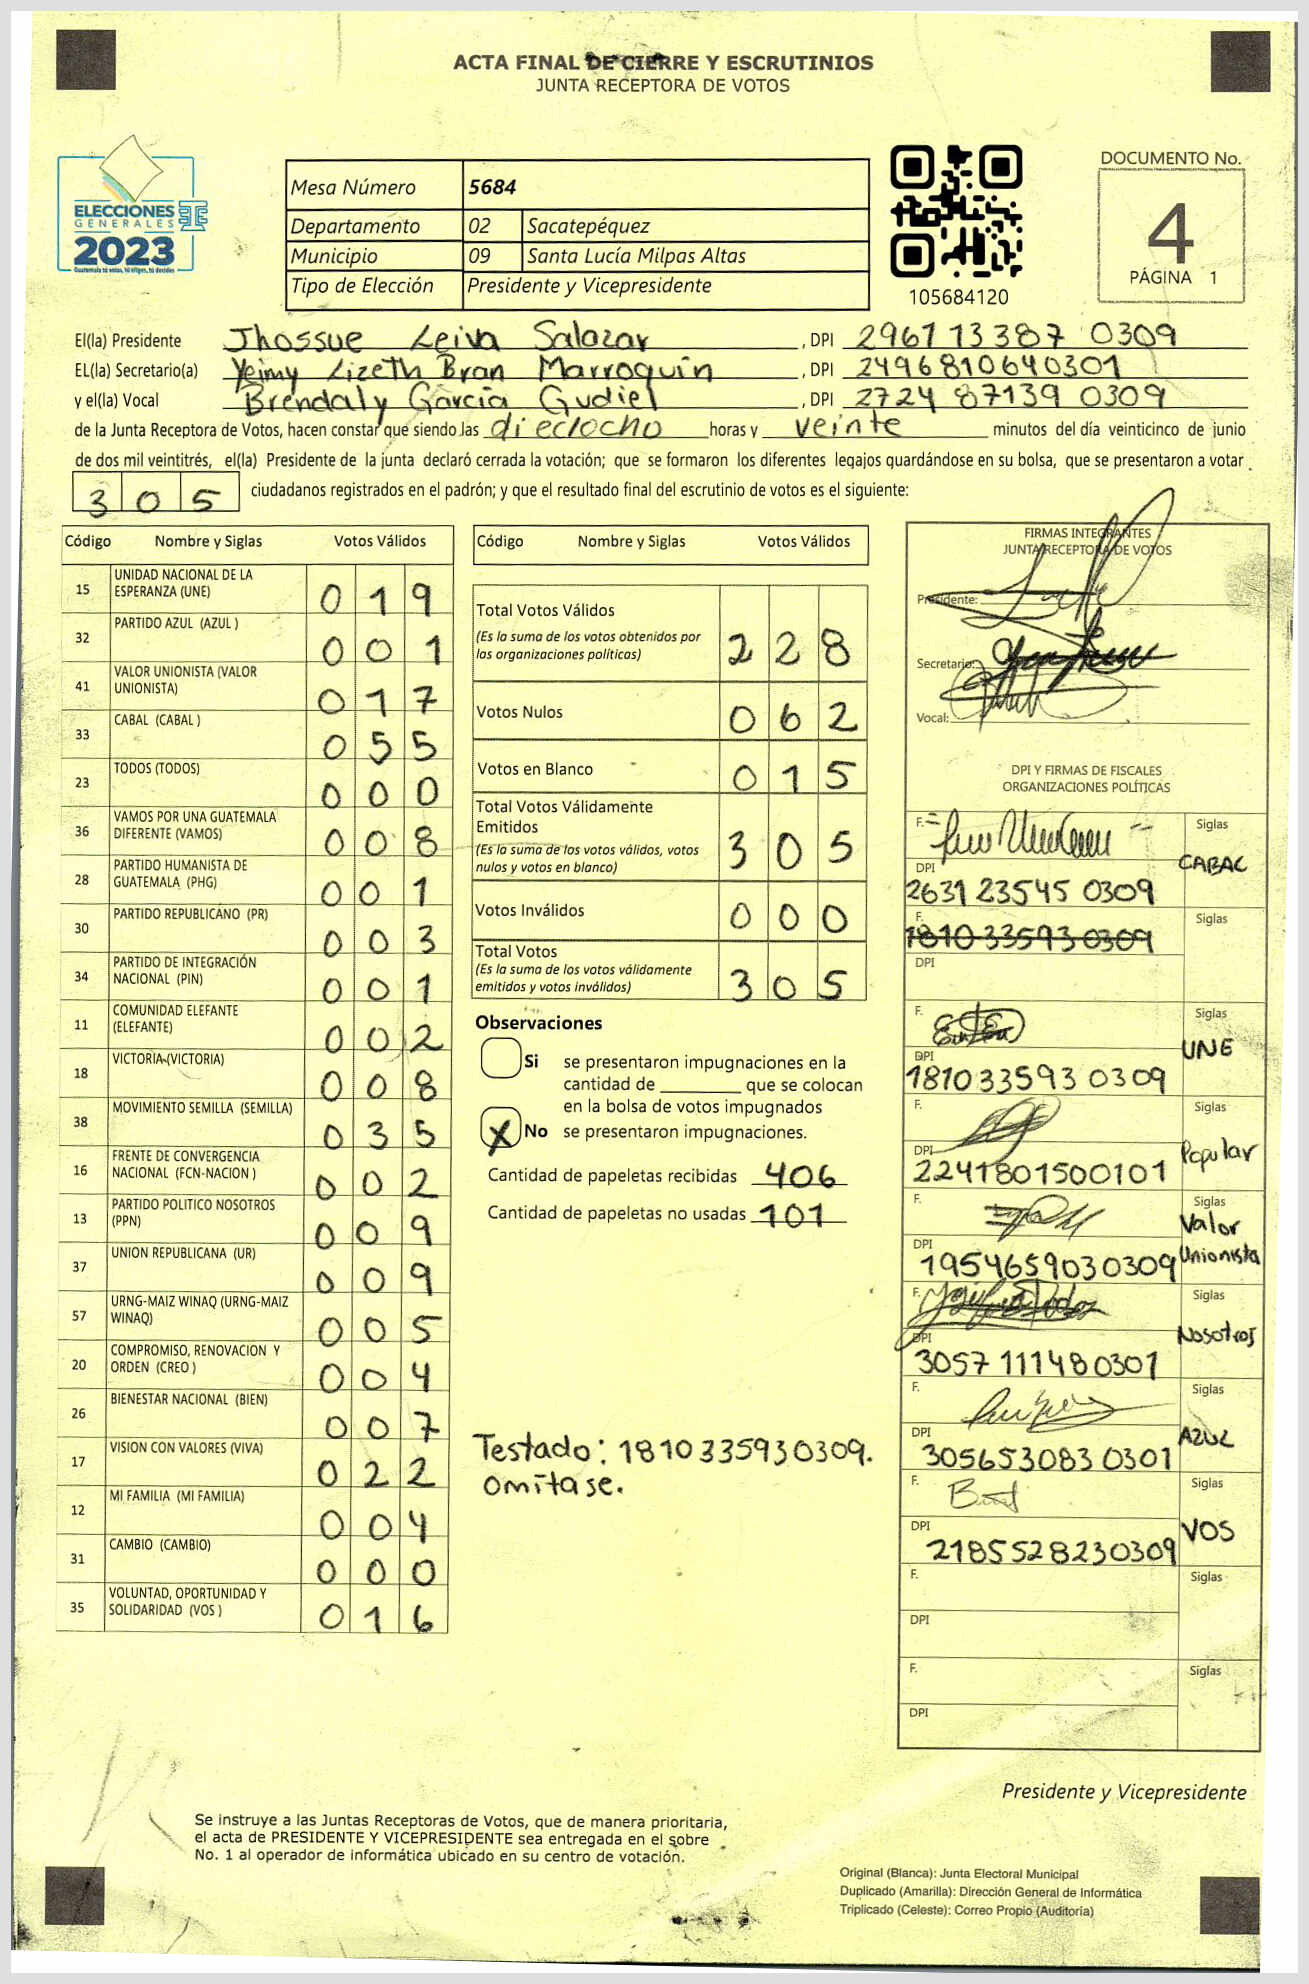 ACTA FINAL DE CIERRE Y ESCRUTINIOS
JUNTA RECEPTORA DE VOTOS
ELECCIONES
GENERALES
2023
Guatemala tú votas, tú eliges, tú decides
Mesa Número 5684
Departamento 02 Sacatepéquez
Municipio 09 Santa Lucía Milpas Altas
Tipo de Elección Presidente y Vicepresidente
105684120
DOCUMENTO No.
4
PÁGINA 1
El(la) Presidente Jhossue Leiva Salazar, DPI 2961 13387 0309
EL(la) Secretario(a) Yeimy Lizeth Bran Marroquin, DPI 2496810640301
y el(la) Vocal Brendaly García Gudiel, DPI 2724 87139 0309
de la Junta Receptora de Votos, hacen constar que siendo las dieciocho horas y veinte minutos del día veinticinco de junio
de dos mil veintitrés, el(la) Presidente de la junta declaró cerrada la votación; que se formaron los diferentes legajos guardándose en su bolsa, que se presentaron a votar
305 ciudadanos registrados en el padrón; y que el resultado final del escrutinio de votos es el siguiente:
Código Nombre y Siglas Votos Válidos
15 UNIDAD NACIONAL DE LA ESPERANZA (UNE) 019
32 PARTIDO AZUL (AZUL ) 001
41 VALOR UNIONISTA (VALOR UNIONISTA) 017
33 CABAL (CABAL ) 055
23 TODOS (TODOS) 000
36 VAMOS POR UNA GUATEMALA DIFERENTE (VAMOS) 008
28 PARTIDO HUMANISTA DE GUATEMALA (PHG) 001
30 PARTIDO REPUBLICANO (PR) 003
34 PARTIDO DE INTEGRACIÓN NACIONAL (PIN) 001
11 COMUNIDAD ELEFANTE (ELEFANTE) 002
18 VICTORIA (VICTORIA) 008
38 MOVIMIENTO SEMILLA (SEMILLA) 035
16 FRENTE DE CONVERGENCIA NACIONAL (FCN-NACION ) 002
13 PARTIDO POLITICO NOSOTROS (PPN) 009
37 UNION REPUBLICANA (UR) 009
57 URNG-MAIZ WINAQ (URNG-MAIZ WINAQ) 005
20 COMPROMISO, RENOVACION Y ORDEN (CREO ) 004
26 BIENESTAR NACIONAL (BIEN) 007
17 VISION CON VALORES (VIVA) 022
12 MI FAMILIA (MI FAMILIA) 004
31 CAMBIO (CAMBIO) 000
35 VOLUNTAD, OPORTUNIDAD Y SOLIDARIDAD (VOS ) 016
Código Nombre y Siglas Votos Válidos
Total Votos Válidos 228
(Es la suma de los votos obtenidos por
las organizaciones políticas)
Votos Nulos 062
Votos en Blanco 015
Total Votos Válidamente
Emitidos 305
(Es la suma de los votos válidos, votos
nulos y votos en blanco)
Votos Inválidos 000
Total Votos 305
(Es la suma de los votos válidamente
emitidos y votos inválidos)
Observaciones
Si se presentaron impugnaciones en la
cantidad de ________ que se colocan
en la bolsa de votos impugnados
X No se presentaron impugnaciones.
Cantidad de papeletas recibidas 406
Cantidad de papeletas no usadas 101
Testado: 1810335930309.
omítase.
FIRMAS INTEGRANTES
JUNTA RECEPTORA DE VOTOS
Presidente:
Secretario:
Vocal:
DPI Y FIRMAS DE FISCALES
ORGANIZACIONES POLÍTICAS
F. Siglas CABAL
DPI 2631 23545 0309
F. 1810 33593 0309 Siglas
DPI
F. Siglas UNE
DPI 1810 33593 0309
F. Siglas Popular
DPI 2241801500101
F. Siglas Valor Unionista
DPI 1954659030309
F. Siglas Nosotros
DPI 3057 111480301
F. Siglas AZUL
DPI 305653083 0301
F. Siglas VOS
DPI 2185528230309
F. Siglas
DPI
F. Siglas
DPI
Presidente y Vicepresidente
Se instruye a las Juntas Receptoras de Votos, que de manera prioritaria,
el acta de PRESIDENTE Y VICEPRESIDENTE sea entregada en el sobre
No. 1 al operador de informática ubicado en su centro de votación.
Original (Blanca): Junta Electoral Municipal
Duplicado (Amarilla): Dirección General de Informática
Triplicado (Celeste): Correo Propio (Auditoría)